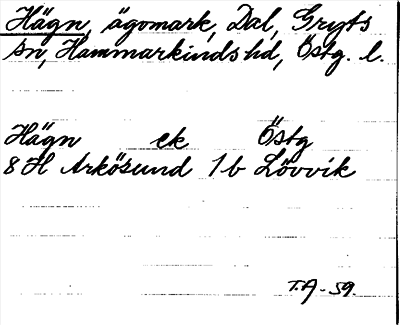 Hägn, ägomark, Dal, Gryts
sn, Hammarkinds hd, Östg. l.
Hägn ek Östg
8 H Arkösund 1 b Lövvik
T.A - 59.